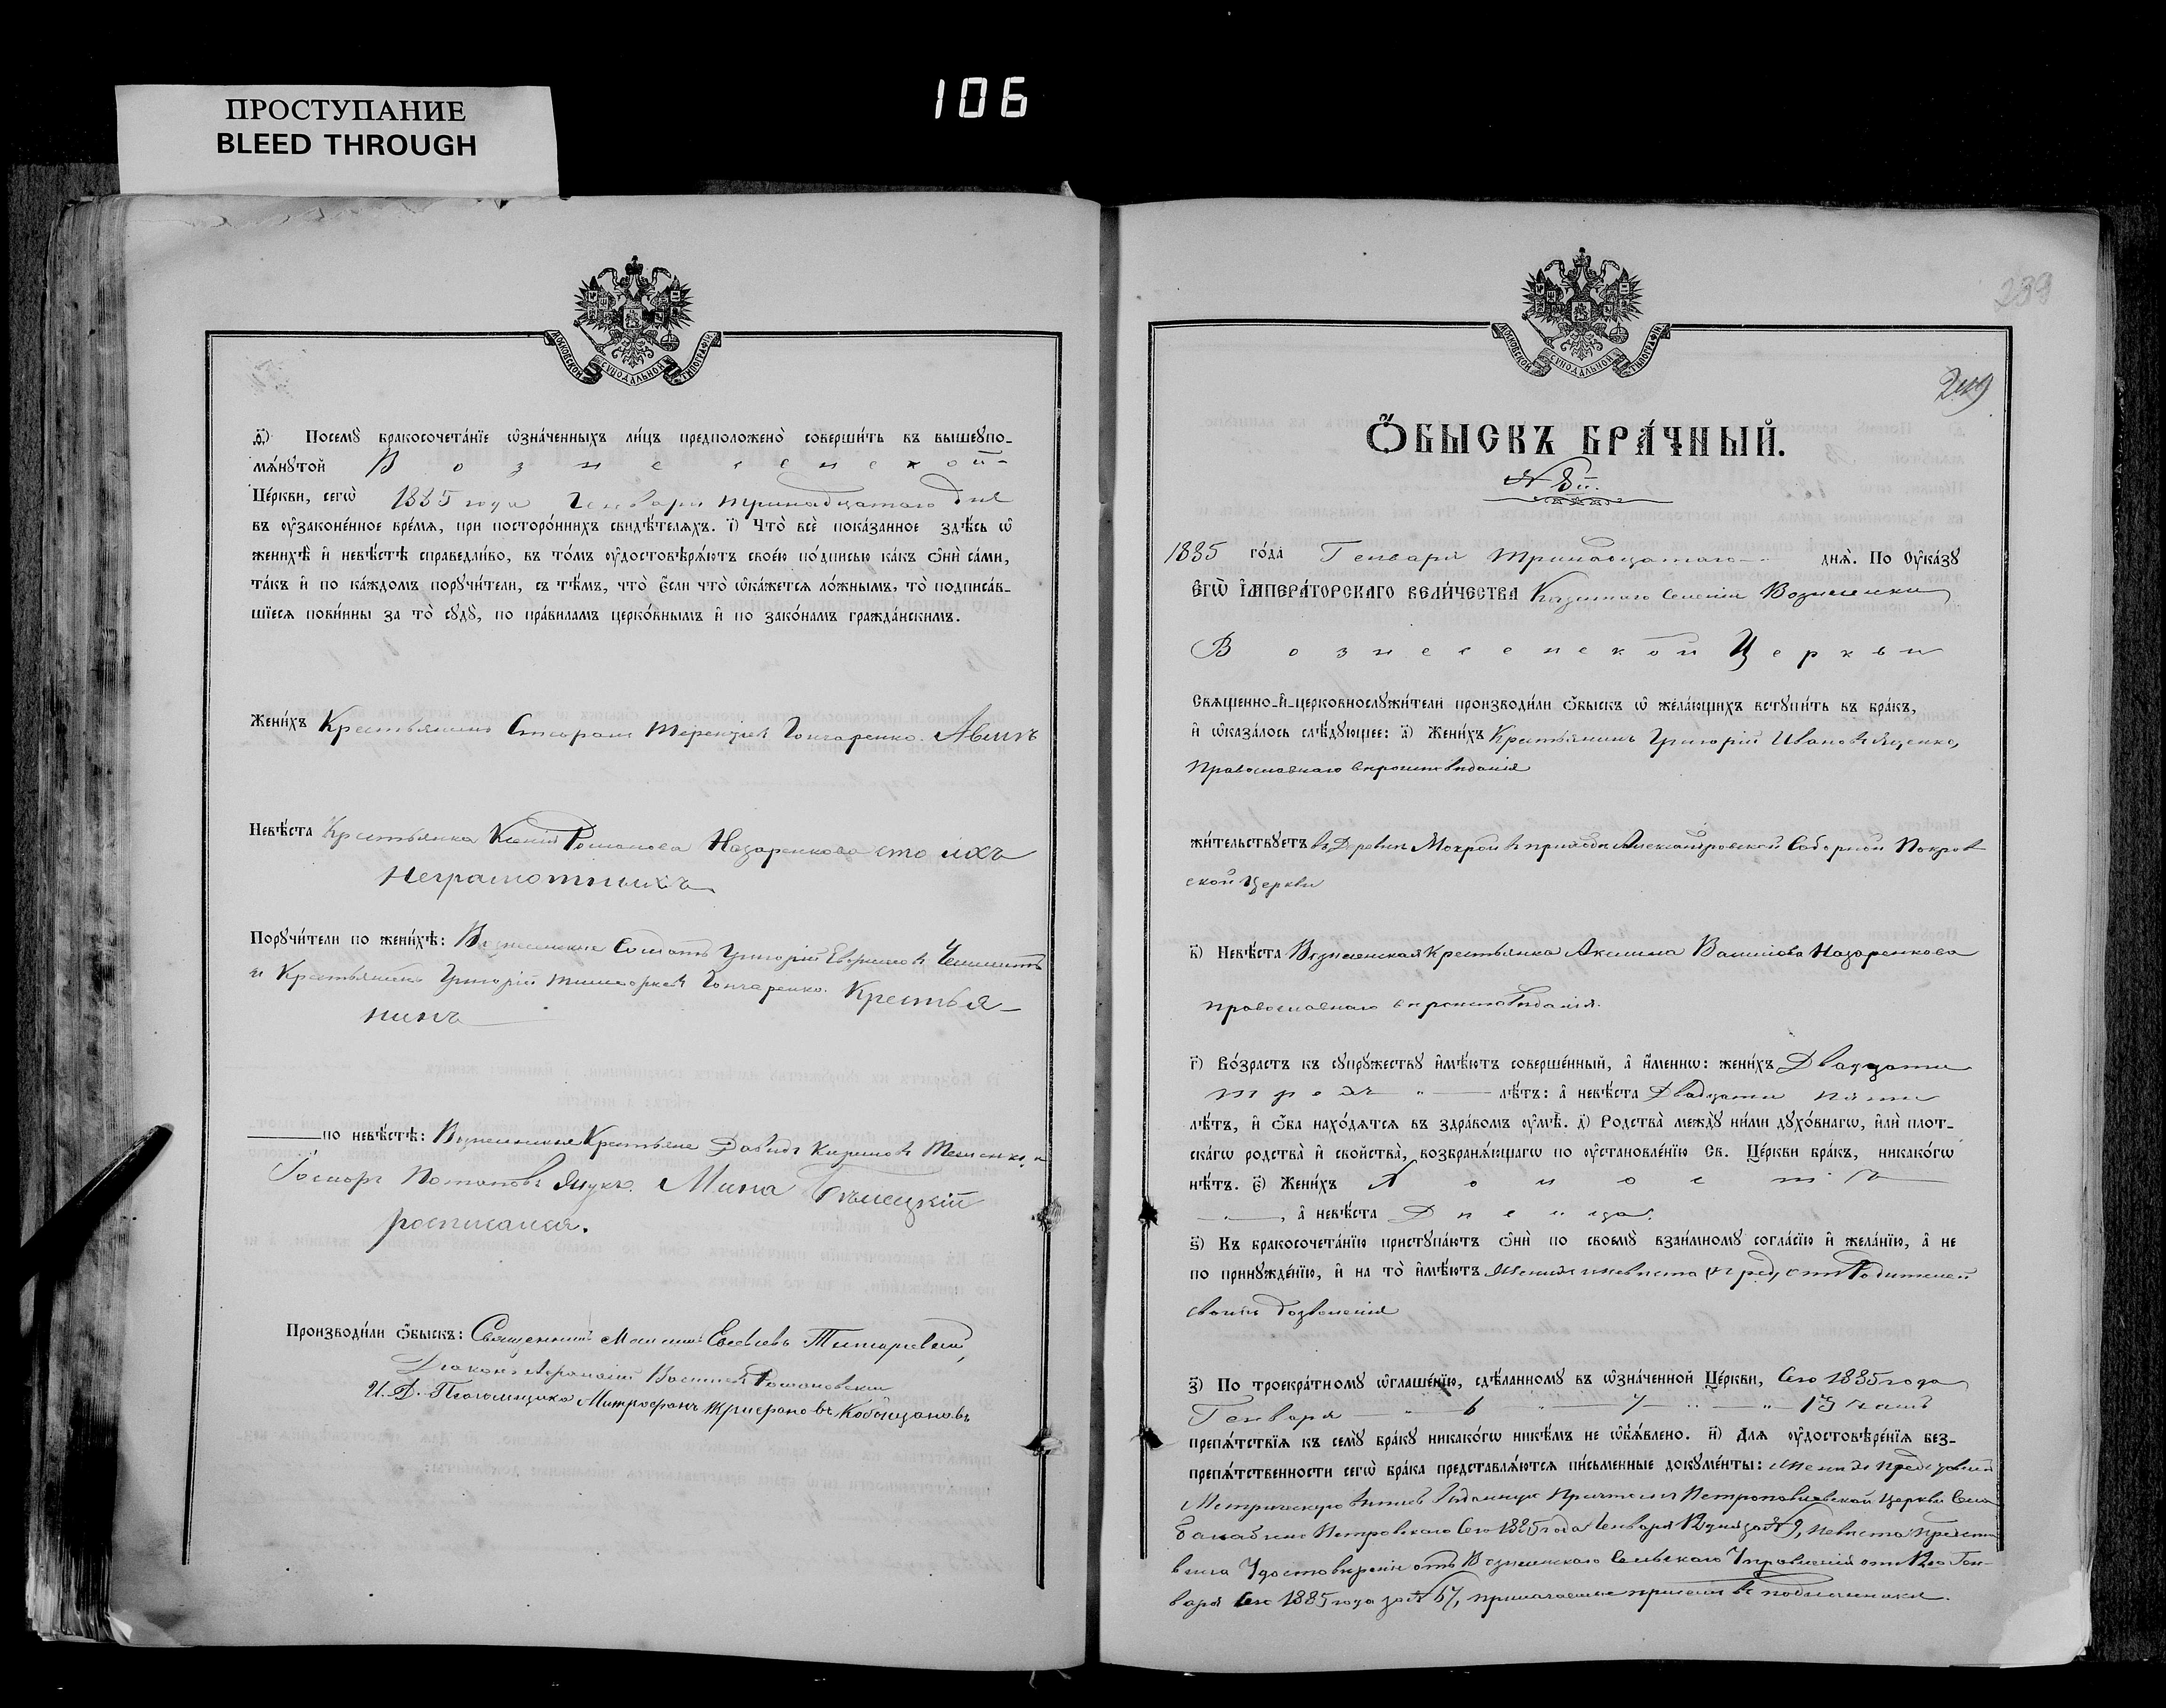 106
ПРОСТУПАНИЕ
BLEED THROUGH
МОСКОВСКОЙ СУНОДАЛЬНОЙ ТИПОГРАФІИ
ѳ҃) Посемꙋ̀ бракосочета́нїе ѡ҆зна́ченныхъ ли́цъ предположено̀ соверши́ть въ вышеꙋпо-
мѧ́нꙋтой Вознесенской
Це́ркви, сегѡ̀ 1885 года Генваря тринадцатаго дня
въ ᲂу҆законе́нное вре́мѧ, при посторо́ннихъ свидѣ́телѧхъ. і҃) Что̀ всѐ пока́занное здѣ́сь ѡ҆
женихѣ̀ и҆ невѣ́стѣ справедли́во, въ то́мъ ᲂу҆достовѣрѧ́ютъ свое́ю по́дписью ка́къ ѻ҆нѝ са́ми,
та́къ и҆ по ка́ждомъ порꙋчи́тели, съ тѣ́мъ, что̀ є҆́сли что̀ ѡ҆ка́жетсѧ ло́жнымъ, то̀ подписа́в-
шїесѧ пови́нны за то̀ сꙋдꙋ̀, по пра́виламъ церко́внымъ и҆ по зако́намъ гражда́нскимъ.
Жени́хъ Крестьянинъ Терентіев Гончаренко.
Невѣ́ста Крестьянка Ксенія Романова Назаренкова ихъ
неграмотныхъ
Порꙋчи́тели по женихѣ̀: Вознесенские Солдатъ Григорій
и Крестьянинъ Григорій Гончаренко. Крестья-
нинъ
по невѣ́стѣ: Вознесенскіе Крестьяне Давидъ Кириловъ и
Потаповъ Яцукъ. Мина Бѣлецкій
росписался.
Производи́ли ѻ҆́быскъ: Священникъ
Діаконъ Романовскій
И. Д. Псаломщика Митрофанъ Кобыщановъ
239
ѺБЫСКЪ БРА́ЧНЫЙ.
№ 8й.
1885 го́да Генваря тринадцатаго днѧ̀. По Оу҆ка́зꙋ
є҆гѡ̀ и҆мпера́торскагѡ вели́чества Казеннаго селенія Вознесенки
Вознесенской Церкви
Свѧщенно-и҆-церковнослꙋжи́тели производи́ли ѻ҆́быскъ ѡ҆ жела́ющихъ встꙋпи́ть въ бра́къ,
и҆ ѡ҆каза́лось слѣ́дꙋющее: а҃) Жени́хъ Крестьянинъ Григорій Ивановъ Яценко,
православнаго вѣроисповѣданія
жи́тельствꙋетъ въ Деревнѣ Мокрой въ приходѣ Александровской Соборной Покров
ской Церкви
в҃) Невѣ́ста Вознесенская Крестьянка Акилина Назаренкова
православнаго вѣроисповѣданія.
г҃) Во́зрастъ къ сꙋпрꙋ́жествꙋ и҆мѣ́ютъ соверше́нный, а҆ и҆́меннѡ: жени́хъ Двадцати
трехъ лѣ́тъ: а҆ невѣ́ста Двадцати пяти
лѣ́тъ, и҆ ѻ҆́ба нахо́дѧтсѧ въ здра́вомъ ᲂу҆мѣ̀. д҃) Родства̀ междꙋ̀ ни́ми дꙋхо́внагѡ, и҆лѝ плот-
ска́гѡ родства̀ и҆ сво́йства, возбранѧ́ющагѡ по ᲂу҆становле́нїю Св. Це́ркви бра́къ, никако́гѡ
нѣ́тъ. є҃) Жени́хъ Холостъ
, а҆ невѣ́ста Дѣвица.
ѕ҃) Къ бракосочета́нїю пристꙋпа́ютъ ѻ҆нѝ по своемꙋ̀ взаи́мномꙋ согла́сїю и҆ жела́нїю, а҆ не
по принꙋжде́нїю, и҆ на то̀ и҆мѣ́ютъ женихъ и невѣста отъ Родителей
своихъ дозволенія
з҃) По троекра́тномꙋ ѡ҆глаше́нїю, сдѣ́ланномꙋ въ ѡ҆зна́ченной Це́ркви, сего 1885 года
Генваря 6 7 13 числъ
препѧ́тствїѧ къ семꙋ̀ бра́кꙋ никако́гѡ никѣ́мъ не ѡ҆б̾ѧ́влено. и҃) Длѧ ᲂу҆достовѣре́нїѧ без-
препѧ́тственности сегѡ̀ бра́ка представлѧ́ютсѧ пи́сьменные докꙋме́нты: женихъ
Метрическую выпись выданную Причтомъ Петропавловской Церкви Села
Петровскаго сего 1885 года Генваря 12 дня за № 9, невѣста предста
вила Удостовѣреніе отъ Вознесенскаго Сельскаго Управленія отъ 12го Ген-
варя сего 1885 года за № 67, прилагаемые при семъ въ подлинникѣ.